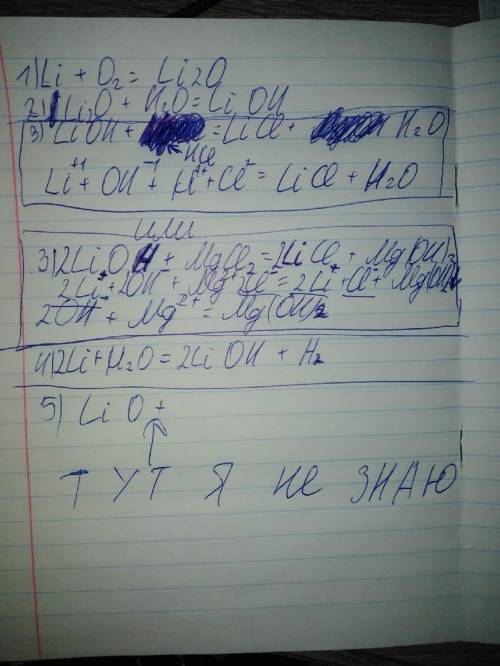 1) Li + O2 = Li2O
2) Li2O + H2O = Li OH
3) LiOH + = LiCl + H2O
HCl
Li+1 + OH-1 + H+ + Cl- = LiCl + H2O
или
3) 2LiOH + MgCl2 = 2LiCl + Mg(OH)2
2Li+ + 2OH- + Mg2+ + 2Cl- = 2Li+ + Cl- + Mg(OH)2
2OH- + Mg2+ = Mg(OH)2
4) 2Li + H2O = 2Li OH + H2
5) Li O +
ТУТ Я НЕ ЗНАЮ